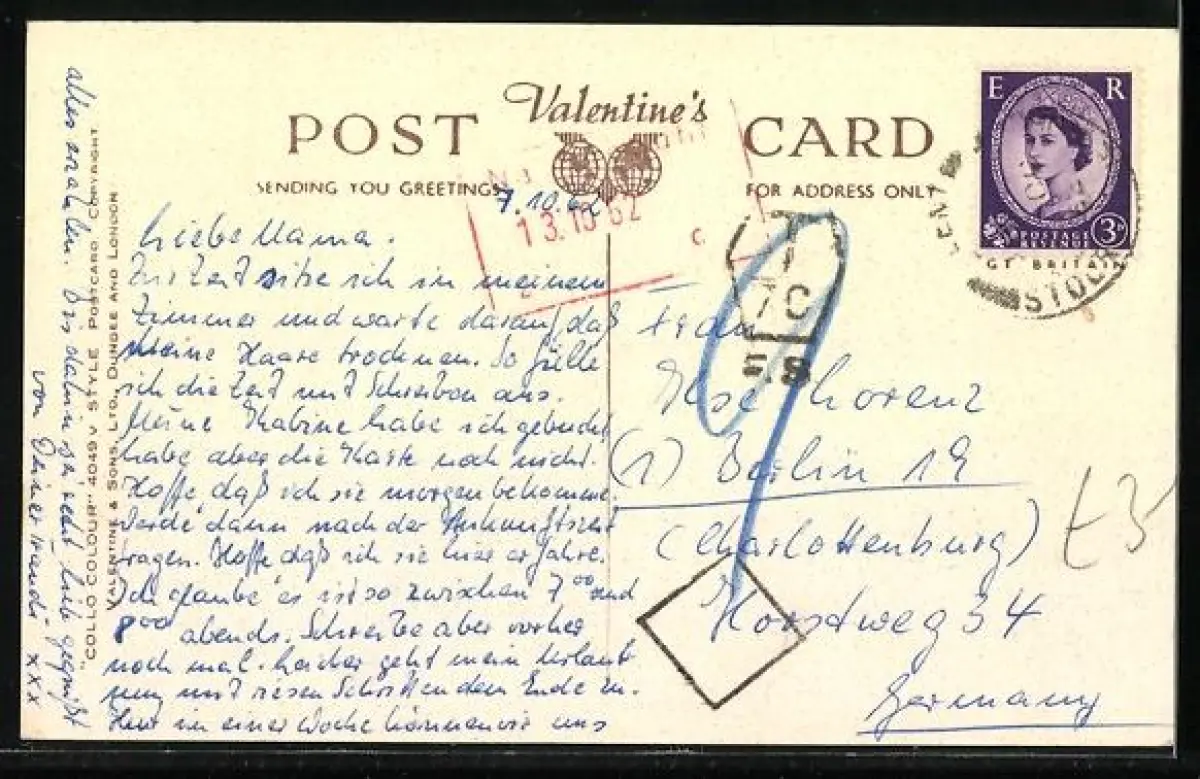 POST Valentine's CARD
SENDING YOU GREETINGS
FOR ADDRESS ONLY
E R
POSTAGE
REVENUE
3D
GT BRITAIN
13.10 62
T
10 C
7.10.62
Liebe Mama.
Zur Zeit sitze ich in meinem
Zimmer und warte darauf, daß
meine Haare trocknen. So fülle
ich die Zeit mit Schreiben aus.
Meine Kabine habe ich gebucht
habe aber die Karte noch nicht.
Hoffe daß ich sie morgen bekomme.
Werde dann nach der Ankunftszeit
fragen. Hoffe daß ich sie hier erfahre.
Ich glaube es ist so zwischen 7⁰⁰ und
8⁰⁰ abends. Schreibe aber vorher
noch mal. Leider geht mein Urlaub
nun mit riesen Schritten dem Ende zu.
Nur in einer Woche können wir uns
alles erzählen. Bis dahin sei recht lieb gegrüßt
von Deiner xxx
"COLLO COLOUR" 4049 V STYLE POSTCARD. COPYRIGHT
VALENTINE & SONS, LTD., DUNDEE AND LONDON
Frau
Ilse Lorenz
(1) Berlin 19
(Charlottenburg)
Horstweg 34
Germany
9
£3